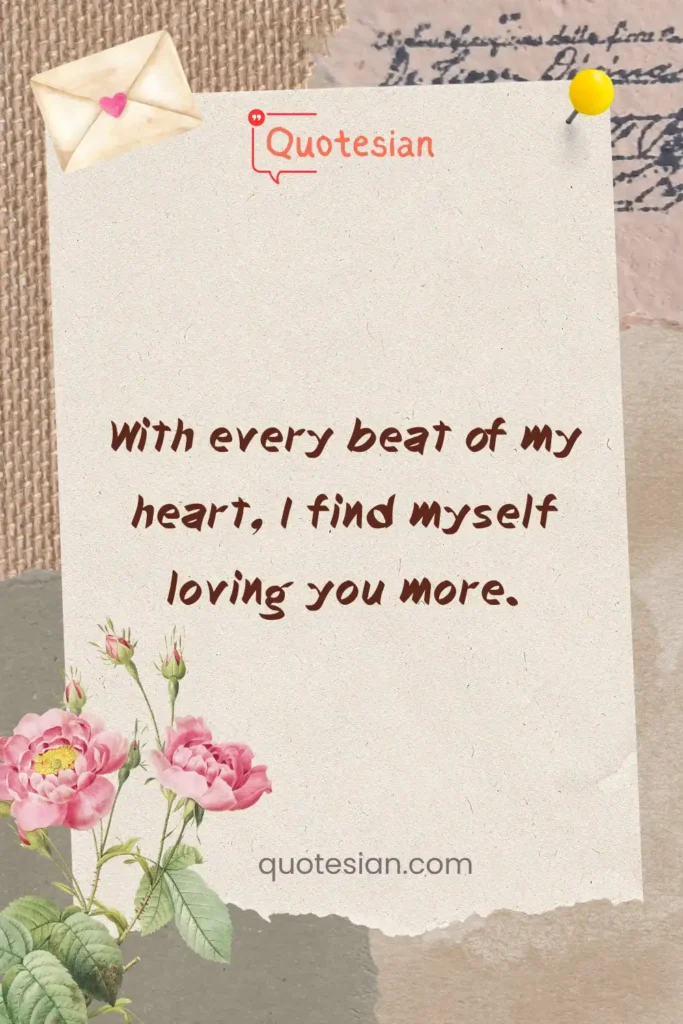 Quotesian
With every beat of my
heart, I find myself
loving you more.
quotesian.com